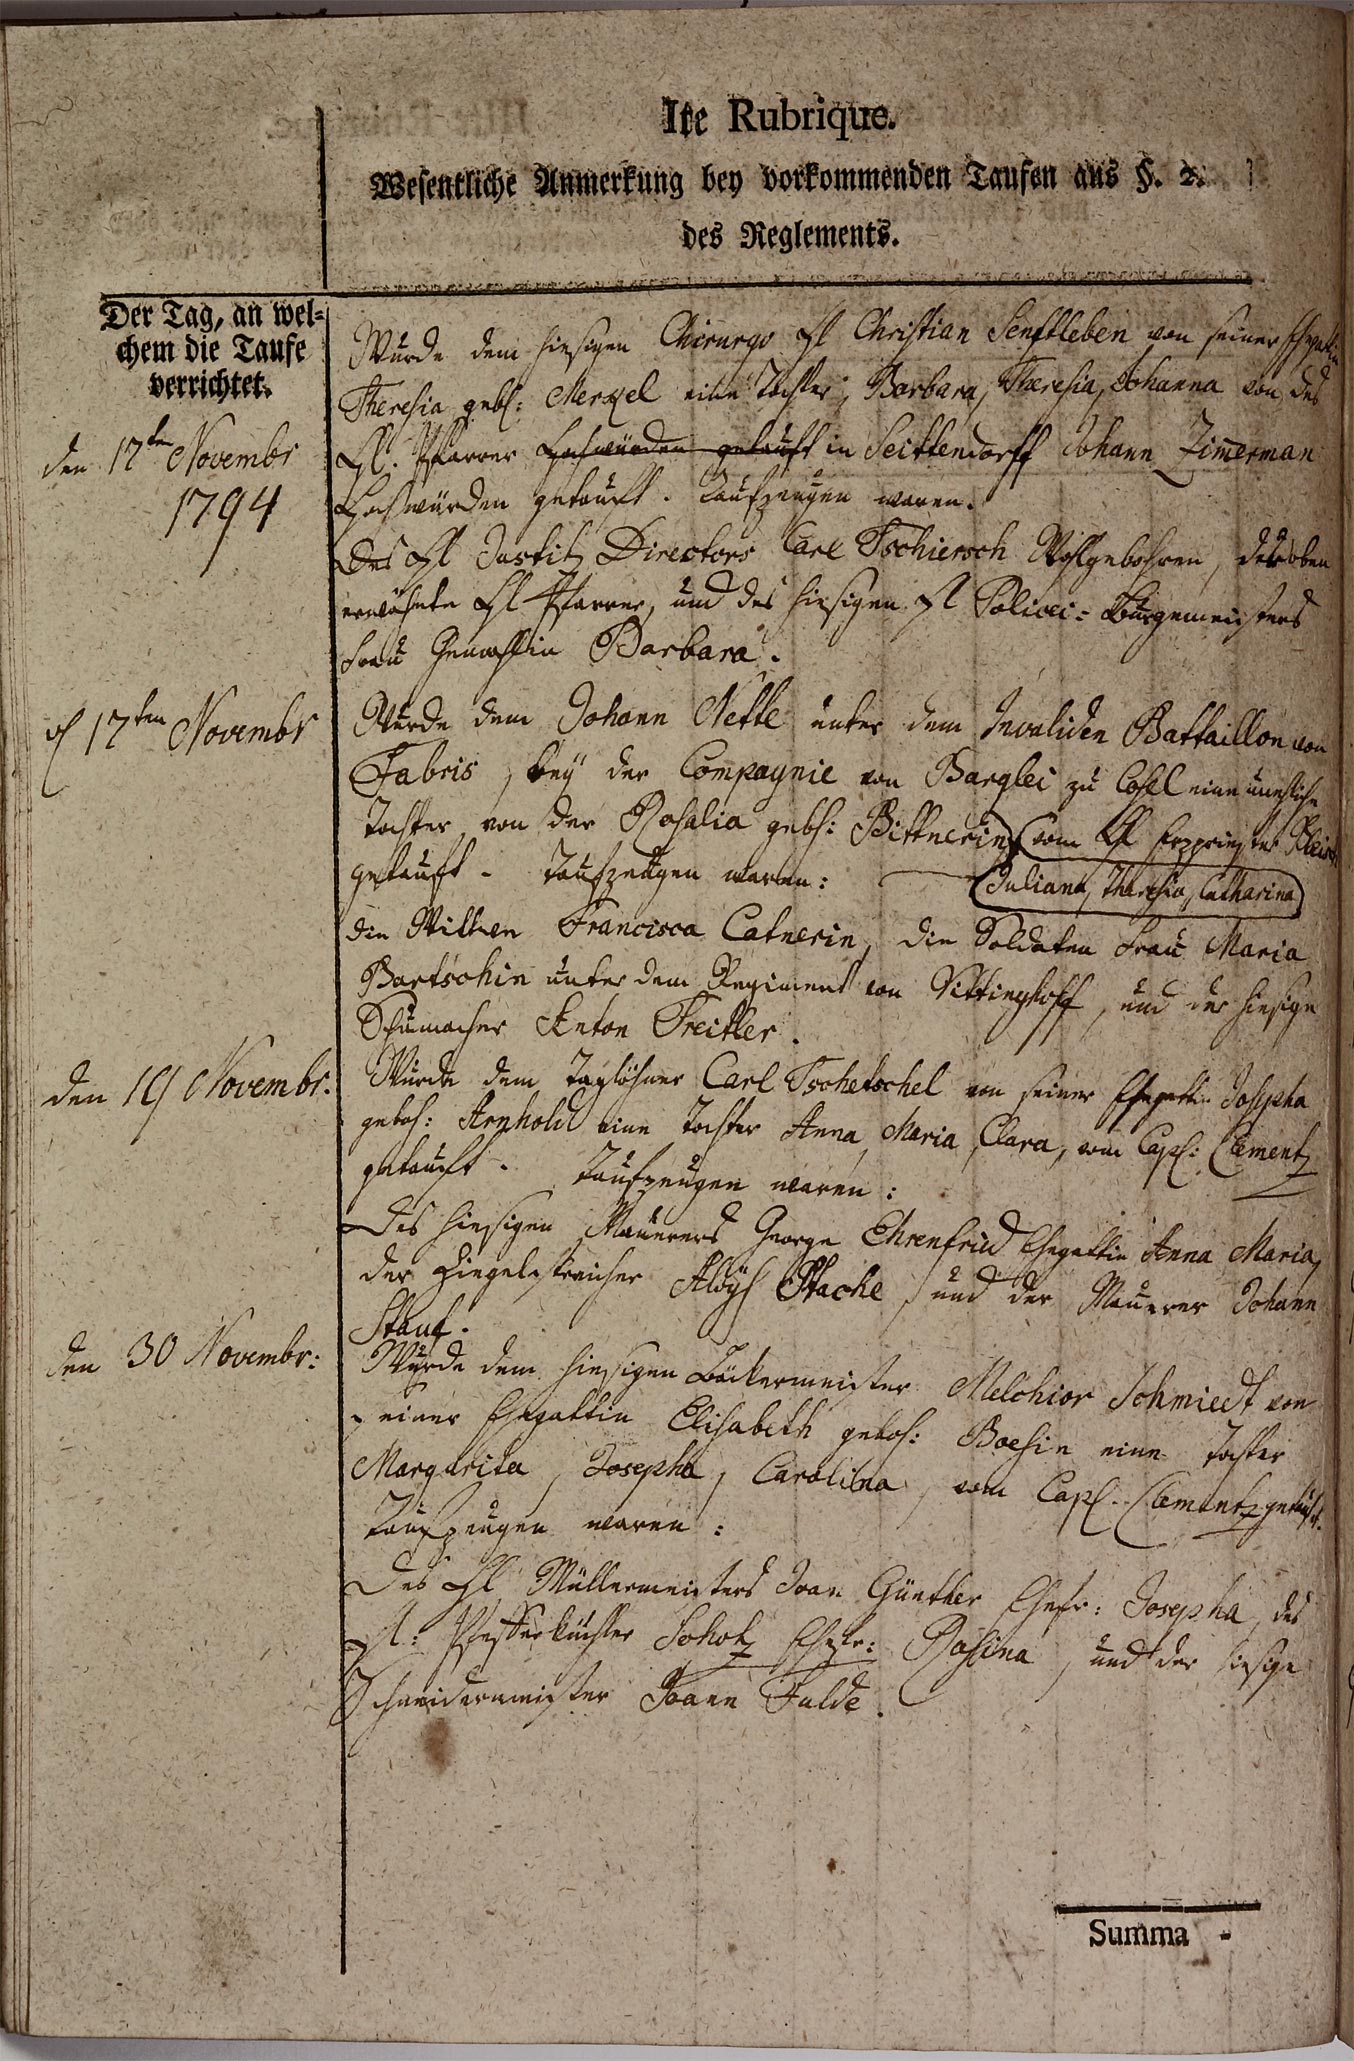 Ite Rubrique.
Wesentliche Anmerkung bey vorkommenden Taufen aus §. 2.
des Reglements.
Der Tag, an wel=
chem die Taufe
verrichtet.
den 17ten Novembr
1794
Wurde dem hiesigen Chirurgo H Christian Senftleben von seiner Ehegattin
Theresia geb: Merkel eine Tochter, Barbara, Theresia, Johanna von des
H. Pfarrer Hochwürden getauft in Seittendorff Johann Zimerman
Hochwürden getauft. Taufzeugen waren.
Des H Justitz Directors Carl Tschiersch Wohlgebohren, der oben
erwähnte H Pfarrer, und des hiesigen H Policei=Bürgemeisters
Frau Gemahlin Barbara.
d 17ten Novembr
Wurde dem Johann Nette unter dem Invaliden Battaillon von
Fabris, bey der Compagnie von Barglei zu Cosel eine unehliche
Tochter von der Rosalia geb: Bittnerin (vom H Erzpriester
getauft. Taufzeugen waren: (Juliana, Theresia, Catharina)
die Wittwe Francisca Catnerin, die Soldaten Frau Maria
Bartschin unter dem Regiment von Vittinghoff, und der hiesige
Schumacher Anton Treitler.
den 19 Novembr.
Wurde dem Taglöhner Carl Tschetschel von seiner Ehegattin Josepha
geboh: Arnhold eine Tochter Anna, Maria, Clara, vom Capl: Clementz
getauft. Taufzeugen waren:
Des hiesigen Mauerers George Ehrenfried Ehegattin Anna Maria,
der Ziegelstreicher Aloys Stache, und der Mauerer Johann
Stauf.
den 30 Novembr:
Wurde dem hiesigen Bäckermeister Melchior Schmiedt von
seiner Ehegattin Elisabeth geboh: Boesin eine Tochter
Margarita, Josepha, Carolina, vom Capl. Clementz getauft.
Taufzeugen waren:
Des H Müllermeisters Joan Günther Ehefr: Josepha, des
H: Pfefferküchler Scholtz Ehefr: Rosina, und der hiesige
Schneidermeister Joann Fulde.
Summa -